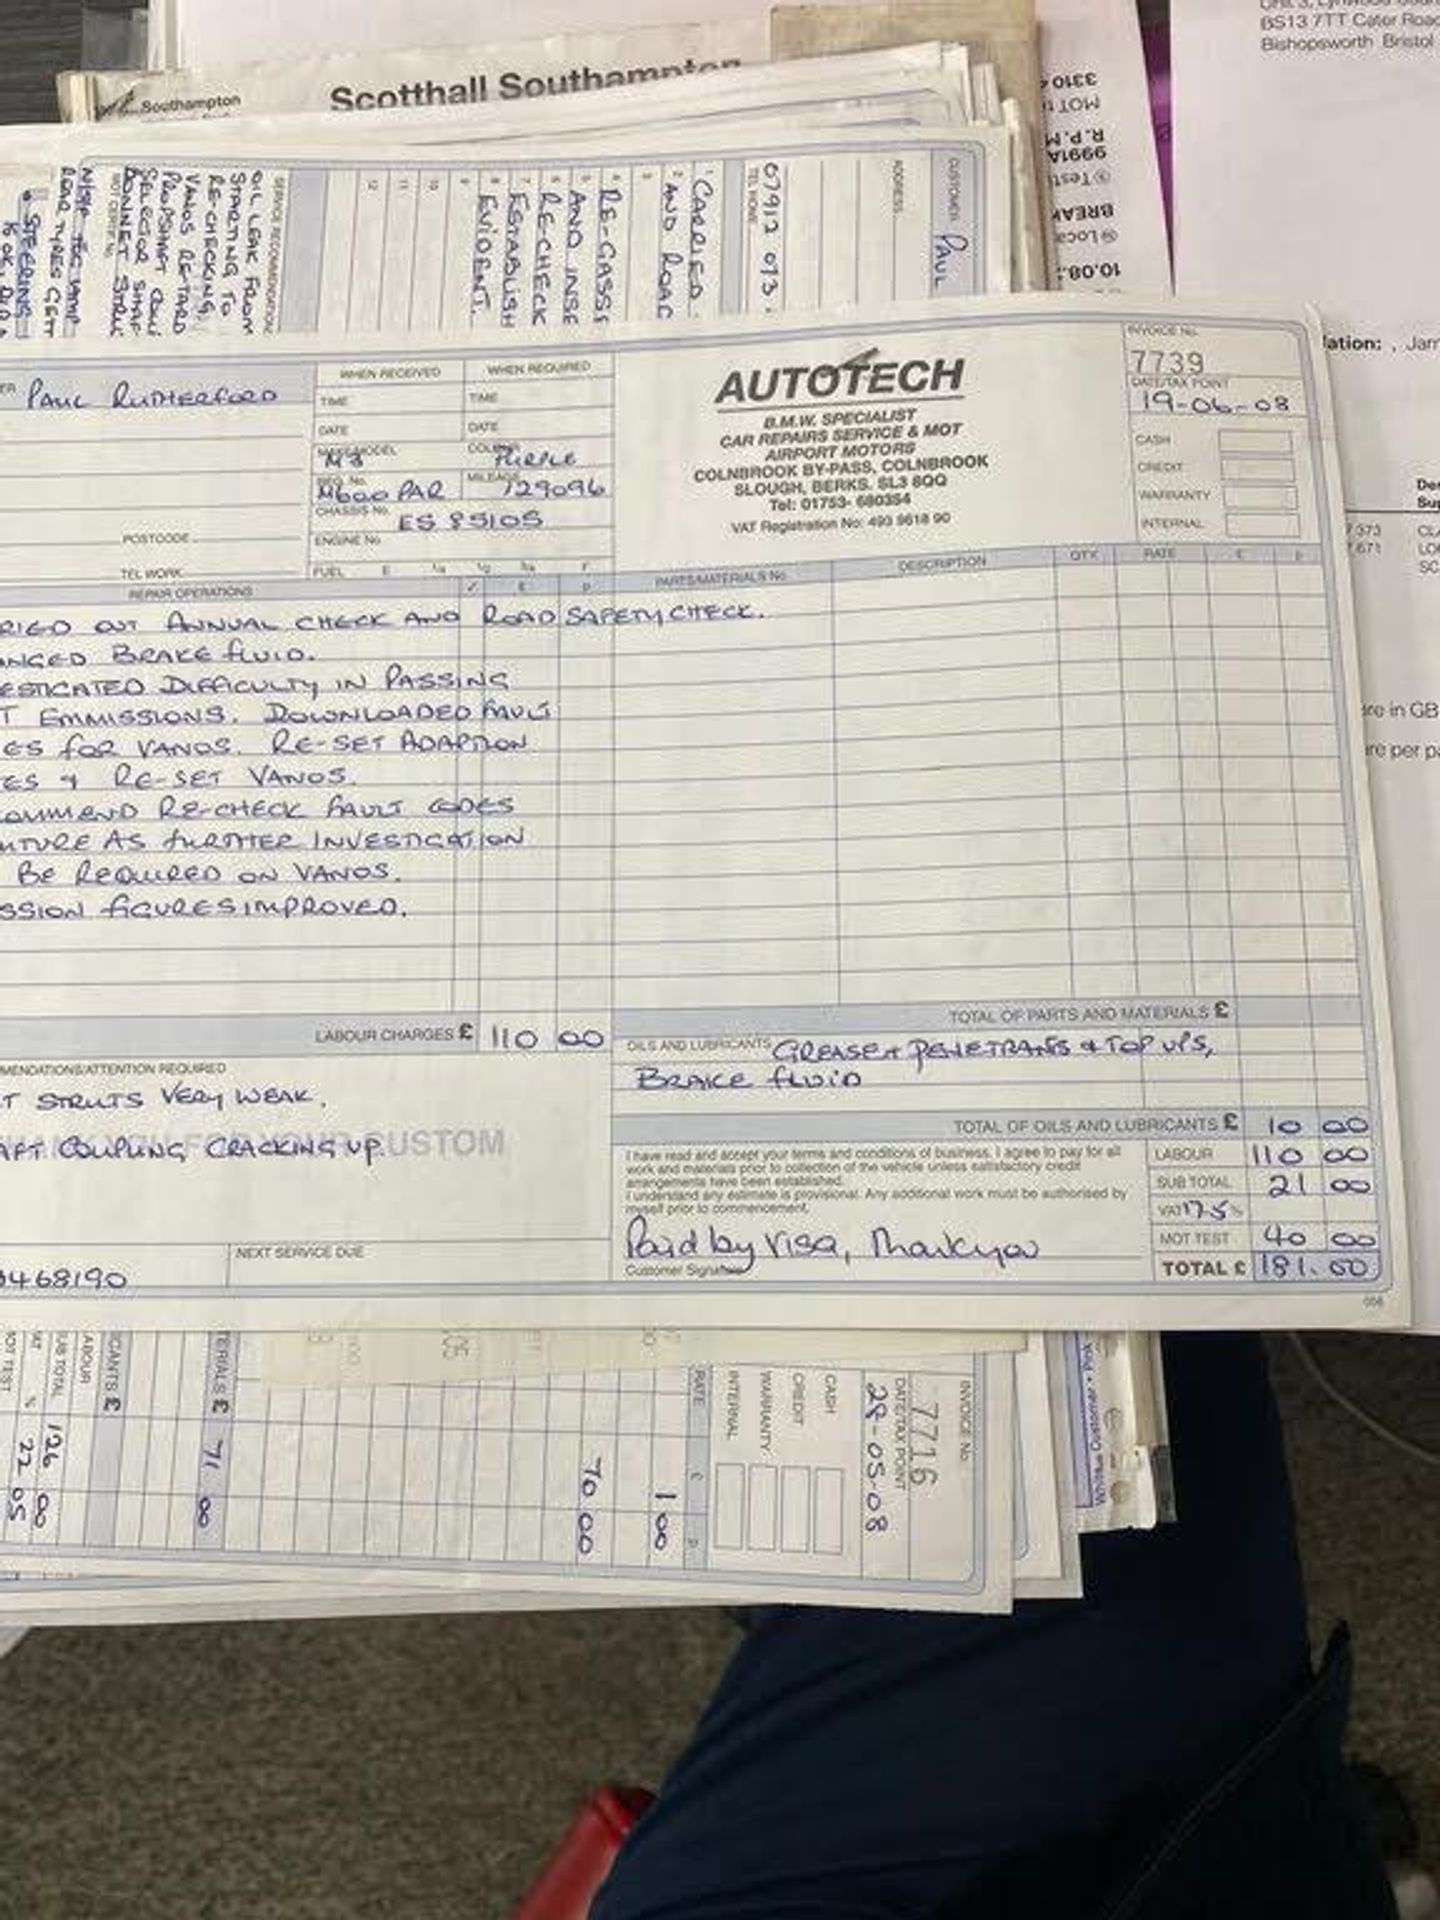 Southampton
Scotthall Southampton
BS13 7TT Cater Road
Bishopsworth Bristol
3310
MOT
R.P.M
9991A
BREAK
10.08.
CUSTOMER PAUL
ADDRESS
07912 073
TEL HOME
1 CARRIED
2 AND ROAD
3
4 RE-GASS
5 AND INSE
6 RE-CHECK
7 ESTABLISH
8 EVIDENT.
9
10
11
12
SERVICE RECOMMENDATION
OIL LEAK FROM
STARTING TO
RE-CHECKING.
VANOS RE-TARD
PROPSHAFT COU
SELECTOR SHAF
BONNET STRU
MOT CERTIF No.
REAR TYRES GETT
STEERING
PAUL RUTHERFORD
WHEN RECEIVED
WHEN REQUIRED
TIME
TIME
DATE
DATE
MAKE/MODEL
M3
COLOUR
PURPLE
REG. No.
M600 PAR
MILEAGE
129096
CHASSIS No.
ES 85105
ENGINE No
POSTCODE
TEL WORK
FUEL E 1/4 1/2 3/4 F
AUTOTECH
B.M.W. SPECIALIST
CAR REPAIRS SERVICE & MOT
AIRPORT MOTORS
COLNBROOK BY-PASS, COLNBROOK
SLOUGH, BERKS. SL3 8QQ
Tel: 01753- 680354
VAT Registration No: 493 9618 90
INVOICE No.
7739
DATE/TAX POINT
19-06-08
CASH
CREDIT
WARRANTY
INTERNAL
REPAIR OPERATIONS ✓ £ p
PARTS/MATERIALS No. DESCRIPTION QTY. RATE £ p
RIED OUT ANNUAL CHECK AND ROAD SAFETY CHECK.
ANGED BRAKE FLUID.
ESTIGATED DIFFICULTY IN PASSING
T EMMISSIONS. DOWNLOADED FAULT
ES FOR VANOS. RE-SET ADAPTION
ES & RE-SET VANOS.
COMMEND RE-CHECK FAULT CODES
UTURE AS FURTHER INVESTIGATION
BE REQUIRED ON VANOS.
SSION FIGURES IMPROVED.
LABOUR CHARGES £ 110 00
TOTAL OF PARTS AND MATERIALS £
OILS AND LUBRICANTS GREASE + PENETRANS & TOP UPS,
BRAKE FLUID
MMENDATIONS/ATTENTION REQUIRED
T STRUTS VERY WEAK.
AFT COUPLING CRACKING UP.
CUSTOM
TOTAL OF OILS AND LUBRICANTS £ 10 00
I have read and accept your terms and conditions of business. I agree to pay for all
work and materials prior to collection of the vehicle unless satisfactory credit
arrangements have been established.
I understand any estimate is provisional. Any additional work must be authorised by
myself prior to commencement.
LABOUR 110 00
SUB TOTAL 21 00
VAT 17.5 %
MOT TEST 40 00
TOTAL £ 181.00
Paid by Visa, Thankyou
Customer Signature
468190
NEXT SERVICE DUE
008
INVOICE No.
7716
DATE/TAX POINT
28-05-08
CASH
CREDIT
WARRANTY
INTERNAL
RATE £ p
1 00
70 00
TERIALS £ 71 00
ICANTS £
ABOUR
UB TOTAL 126 00
AT % 22 05
OT TEST
lation: , Jam
7 373
7.671
re in GB
re per pa